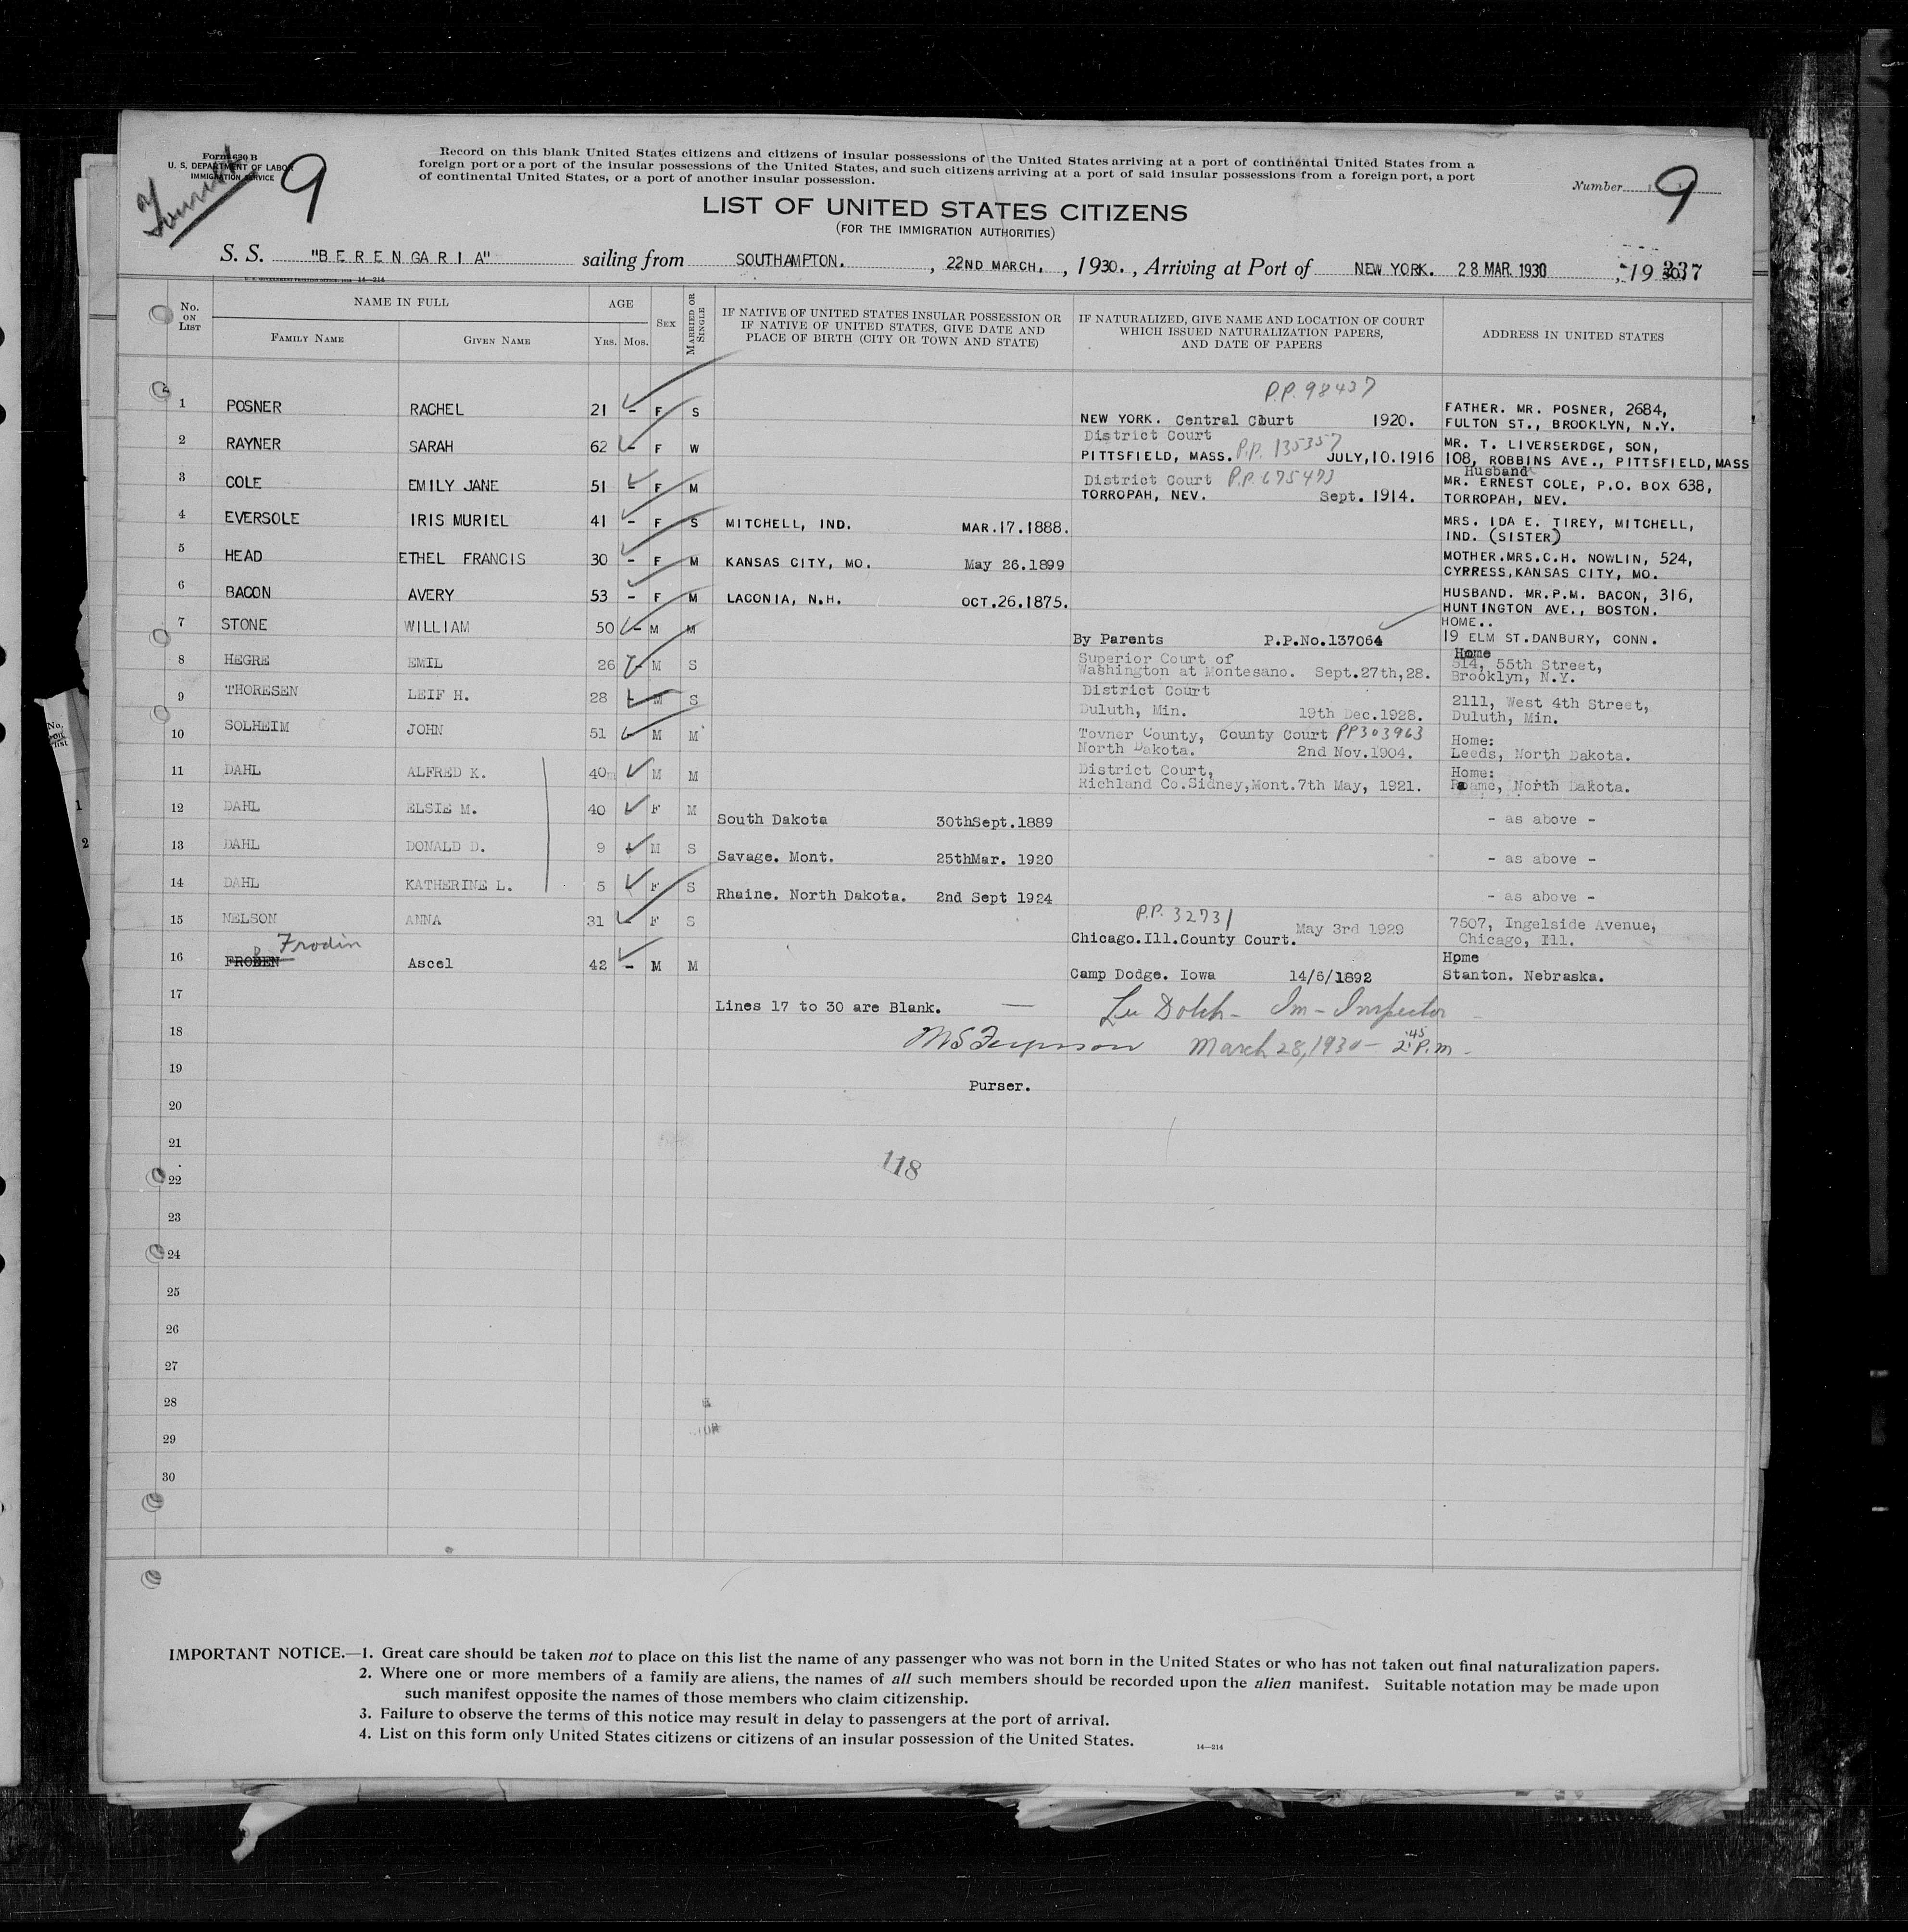 Form 630 B
U. S. DEPARTMENT OF LABOR
IMMIGRATION SERVICE
Tourist
9
Record on this blank United States citizens and citizens of insular possessions of the United States arriving at a port of continental United States from a
foreign port or a port of the insular possessions of the United States, and such citizens arriving at a port of said insular possessions from a foreign port, a port
of continental United States, or a port of another insular possession.
Number 9
LIST OF UNITED STATES CITIZENS
(FOR THE IMMIGRATION AUTHORITIES)
S. S. "BERENGARIA" sailing from SOUTHAMPTON. , 22ND MARCH, , 1930. , Arriving at Port of NEW YORK. 28 MAR 1930 , 19 237
No. ON LIST NAME IN FULL AGE SEX MARRIED OR SINGLE IF NATIVE OF UNITED STATES INSULAR POSSESSION OR IF NATIVE OF UNITED STATES, GIVE DATE AND PLACE OF BIRTH (CITY OR TOWN AND STATE) IF NATURALIZED, GIVE NAME AND LOCATION OF COURT WHICH ISSUED NATURALIZATION PAPERS, AND DATE OF PAPERS ADDRESS IN UNITED STATES
FAMILY NAME GIVEN NAME YRS. MOS.
P.P. 98437
1 POSNER RACHEL 21 - F S NEW YORK. Central Court 1920. FATHER. MR. POSNER, 2684,
FULTON ST., BROOKLYN, N.Y.
2 RAYNER SARAH 62 - F W District Court
PITTSFIELD, MASS. P.P. 135357 JULY,10.1916 MR. T. LIVERSERDGE, SON,
108, ROBBINS AVE., PITTSFIELD, MASS
3 COLE EMILY JANE 51 - F M District Court P.P. 675473
TORROPAH, NEV. Sept. 1914. Husband
MR. ERNEST COLE, P.O. BOX 638,
TORROPAH, NEV.
4 EVERSOLE IRIS MURIEL 41 - F S MITCHELL, IND. MAR.17.1888. MRS. IDA E. TIREY, MITCHELL,
IND. (SISTER)
5 HEAD ETHEL FRANCIS 30 - F M KANSAS CITY, MO. May 26.1899 MOTHER.MRS.C.H. NOWLIN, 524,
CYPRESS,KANSAS CITY, MO.
6 BACON AVERY 53 - F M LACONIA, N.H. OCT.26.1875. HUSBAND. MR.P.M. BACON, 316,
HUNTINGTON AVE., BOSTON.
7 STONE WILLIAM 50 - M M By Parents P.P.No.137064 HOME..
19 ELM ST.DANBURY, CONN.
8 HEGRE EMIL 26 - M S Superior Court of
Washington at Montesano. Sept.27th,28. Home
514, 55th Street,
Brooklyn, N.Y.
9 THORESEN LEIF H. 28 - M S District Court
Duluth, Min. 19th Dec.1928. 2111, West 4th Street,
Duluth, Min.
10 SOLHEIM JOHN 51 - M M Tovner County, County Court PP303963
North Dakota. 2nd Nov.1904. Home:
Leeds, North Dakota.
11 DAHL ALFRED K. 40 M M District Court,
Richland Co.Sidney,Mont.7th May, 1921. Home:
North Dakota.
12 DAHL ELSIE M. 40 F M South Dakota 30thSept.1889 - as above -
13 DAHL DONALD D. 9 M S Savage. Mont. 25thMar. 1920 - as above -
14 DAHL KATHERINE L. 5 F S Rhaine. North Dakota. 2nd Sept 1924 - as above -
15 NELSON ANNA 31 - F S P.P. 32731
Chicago.Ill.County Court. May 3rd 1929 7507, Ingelside Avenue,
Chicago, Ill.
Frodin
16 FRODEN Ascel 42 - M M Camp Dodge. Iowa 14/6/1892 Home
Stanton. Nebraska.
17 Lines 17 to 30 are Blank. Im-Inspector
18 March 28, 1930 - 2:45 P.m.
19 Purser.
20
21
118
22
23
24
25
26
27
28
29
30
IMPORTANT NOTICE.—1. Great care should be taken not to place on this list the name of any passenger who was not born in the United States or who has not taken out final naturalization papers.
2. Where one or more members of a family are aliens, the names of all such members should be recorded upon the alien manifest. Suitable notation may be made upon
such manifest opposite the names of those members who claim citizenship.
3. Failure to observe the terms of this notice may result in delay to passengers at the port of arrival.
4. List on this form only United States citizens or citizens of an insular possession of the United States.
14—214